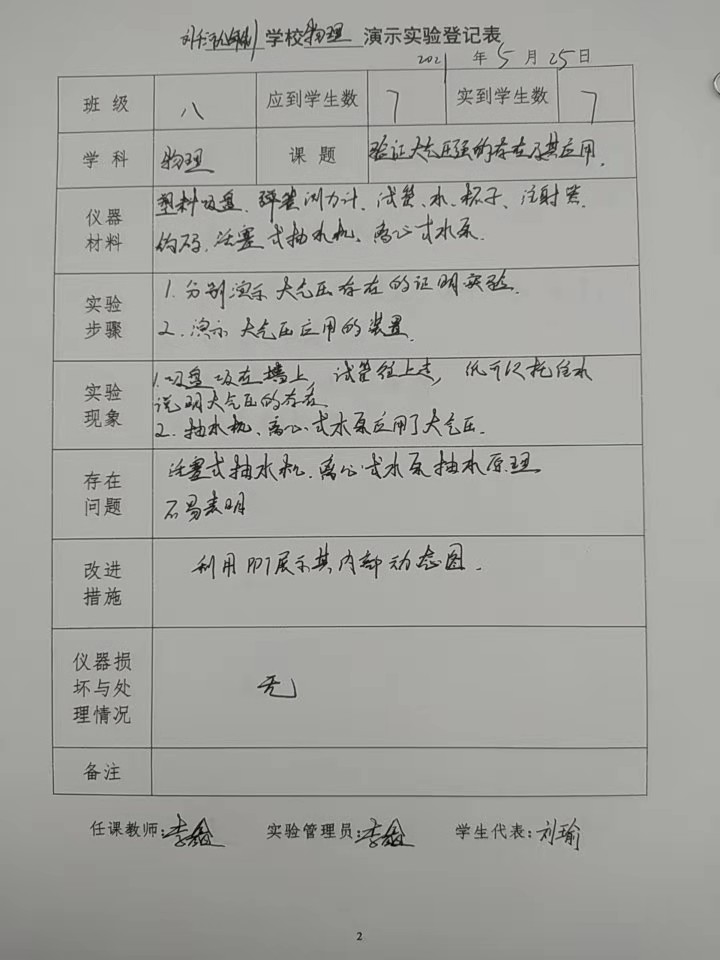 学校物理 演示实验登记表
2021 年 5 月 25 日
班 级 八 应到学生数 7 实到学生数 7
学 科 物理 课 题 验证大气压强的存在及其应用.
仪器 材料 塑料吸盘、弹簧测力计、试管、水、杯子、注射器、
钩码、活塞式抽水机、离心式水泵.
实验 步骤 1. 分别演示大气压存在的证明实验.
2. 演示大气压应用的装置.
实验 现象 1. 吸盘吸在墙上, 试管往上走, 纸可以托住水
说明大气压的存在
2. 抽水机、离心式水泵应用了大气压.
存在 问题 活塞式抽水机、离心式水泵抽水原理
不易表明
改进 措施 利用PPT展示其内部动态图.
仪器损 坏与处 理情况 无
备注
任课教师: 李 实验管理员: 李 学生代表: 刘瑜
2